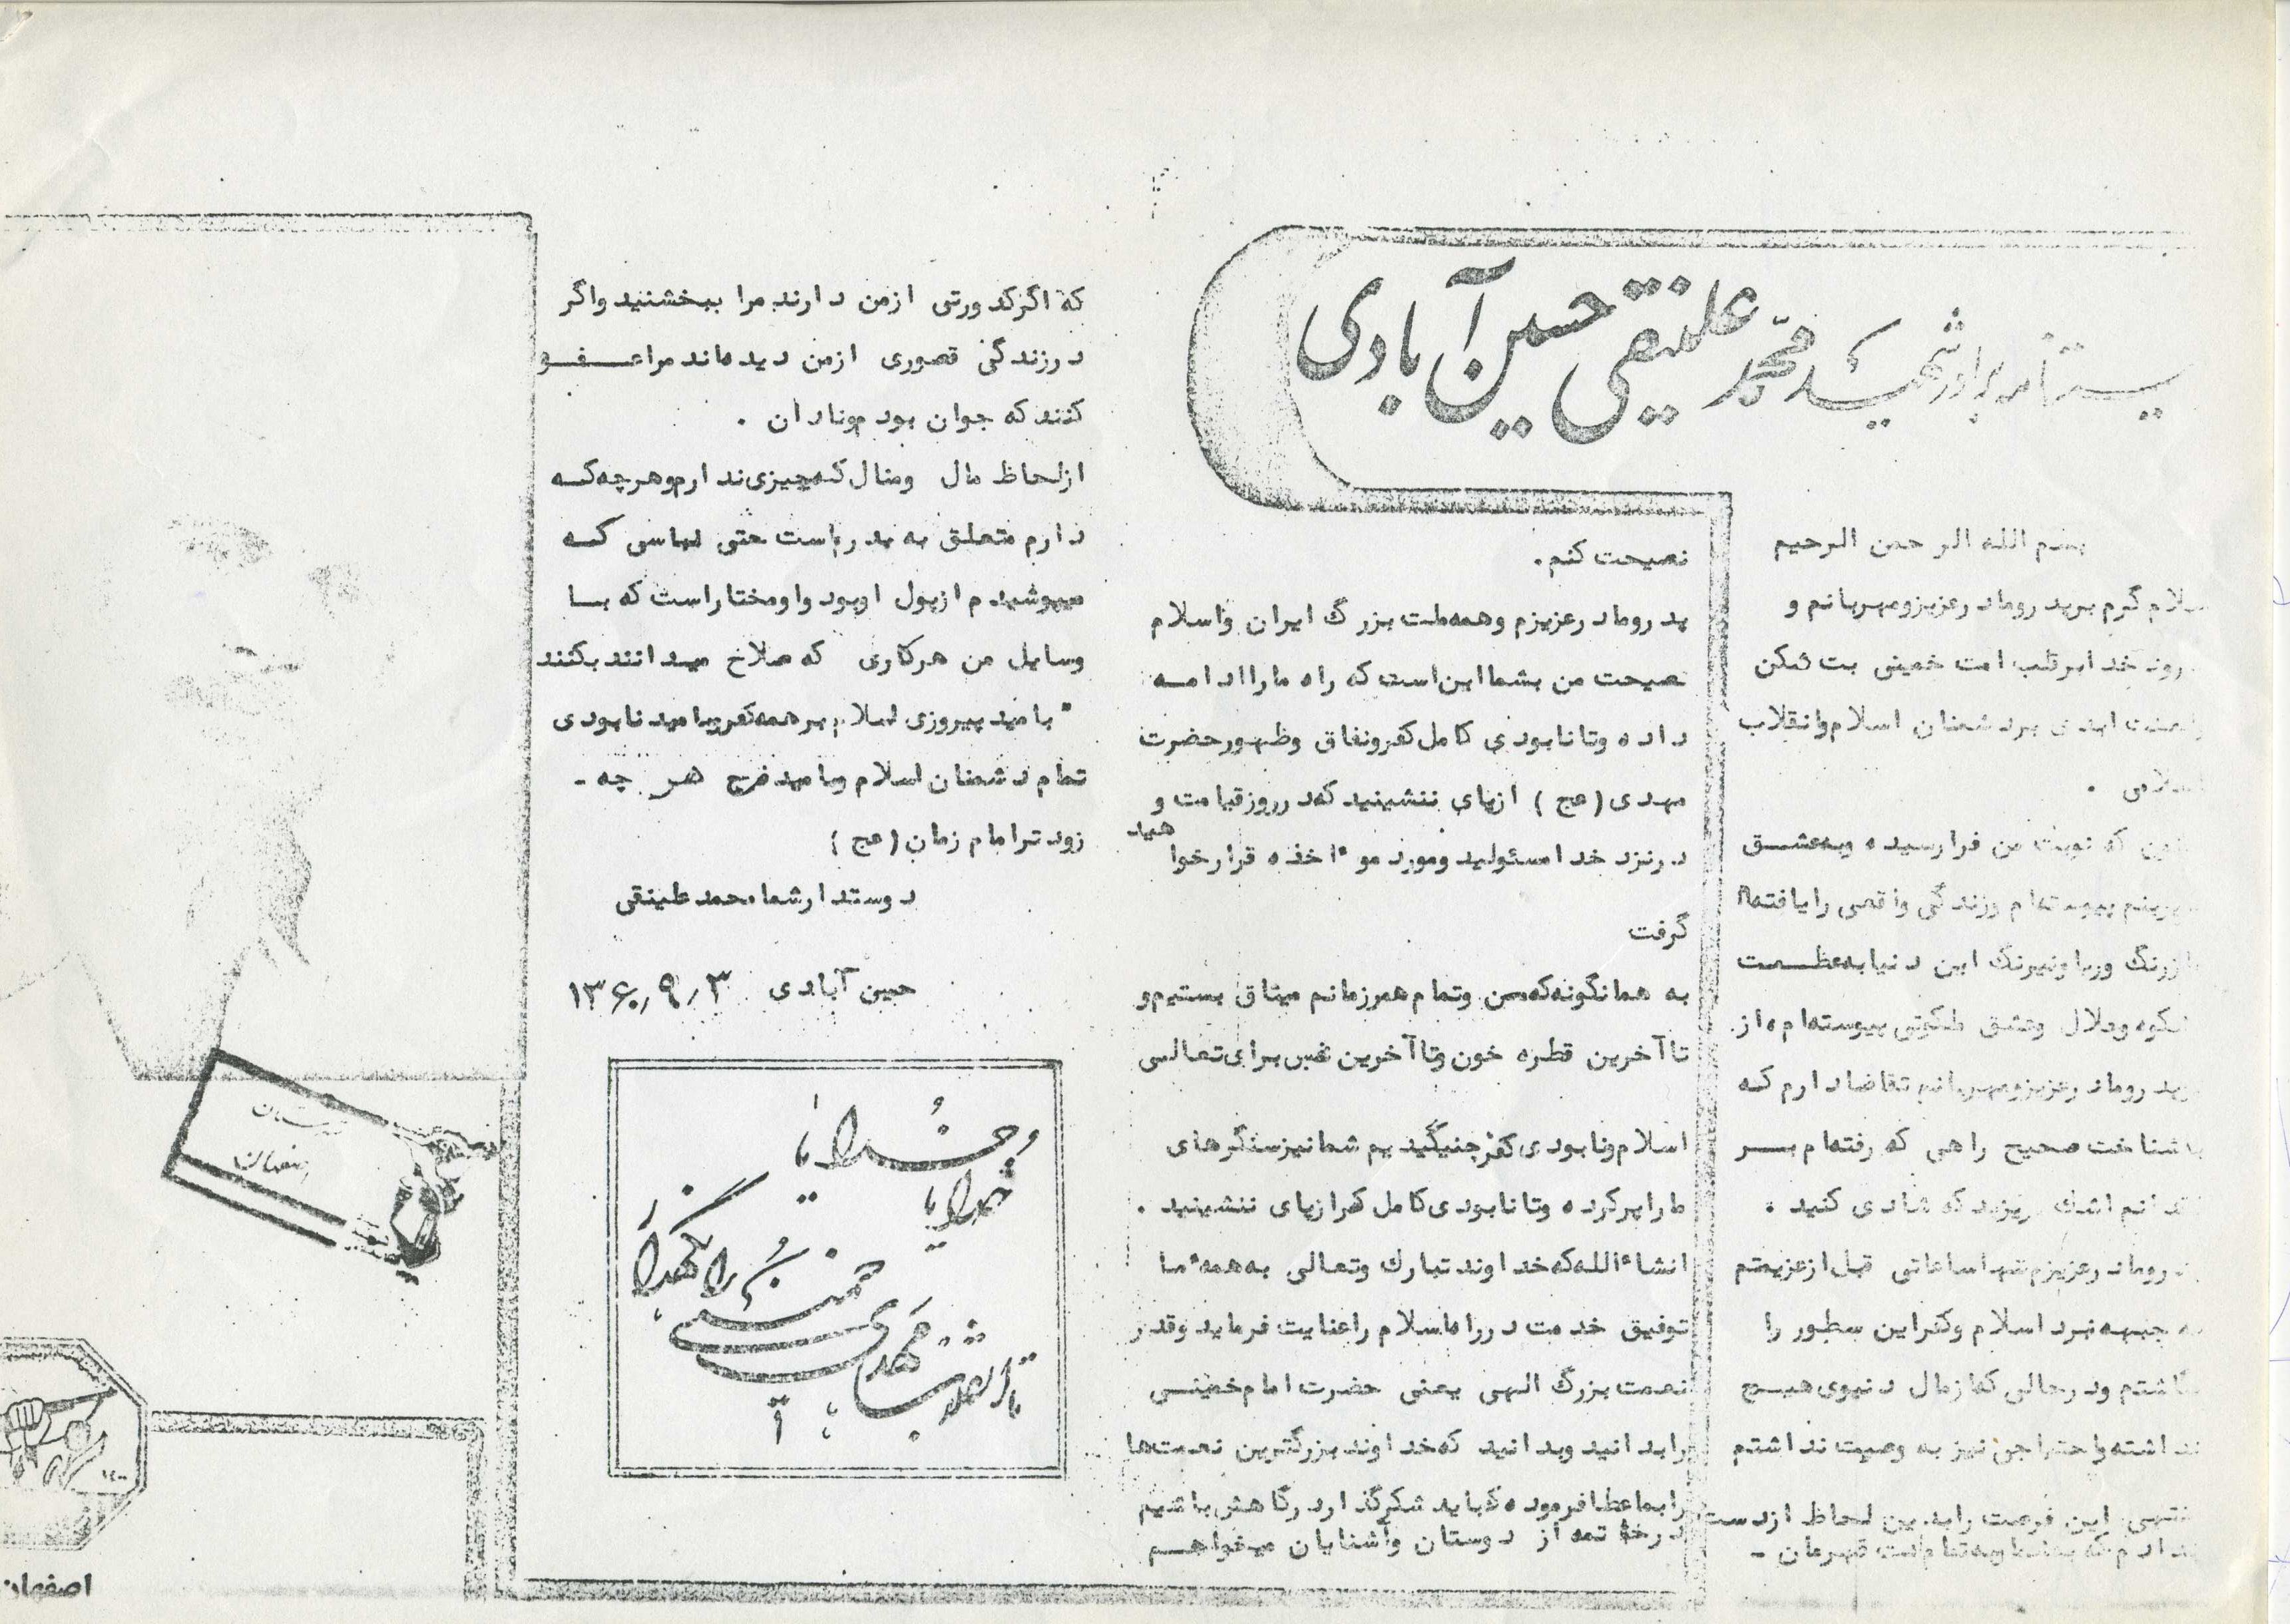 برادر شهید محمد علینقی حسین آبادی
بسم الله الرحمن الرحیم
سلام گرم بر پدر و مادر عزیز و مهربانم و
درود خدا بر قلب امت خمینی بت شکن
و لعنت ابدی بر دشمنان اسلام و انقلاب
اسلامی .
که نوبت من فرا رسیده و به عشق
پیوسته‌ام و زندگی واقعی را یافته‌ام
از رنگ و ریا و نیرنگ این دنیا به عظمت
شکوه و جلال و عشق ملکوتی پیوسته‌ام، از
پدر و مادر عزیز و مهربانم تقاضا دارم که
با شناخت صحیح راهی که رفته‌ام بر
اشک نریزید که شادی کنید .
پدر و مادر عزیزم تنها ساعاتی قبل از عزیمتم
به جبهه نبرد اسلام و کفر این سطور را
نگاشتم و در حالی که از مال دنیوی هیچ
نداشته و احتیاجی نیز به وصیت نداشتم
منتهی این فرصت را بدین لحاظ از دست
ندادم که به شما و به تمام امت قهرمان -
نصیحت کنم .
پدر و مادر عزیزم و همه ملت بزرگ ایران و اسلام
نصیحت من بشما این است که راه ما را ادامه
داده و تا نابودی کامل کفر و نفاق و ظهور حضرت
مهدی (عج) از پای ننشینید که در روز قیامت و
در نزد خدا مسئولید و مورد مو٬اخذه قرار خواهید
گرفت
به همانگونه که من و تمام همرزمانم میثاق بستیم و
تا آخرین قطره خون و تا آخرین نفس برای تعالی
اسلام و نابودی کفر جنگیدیم شما نیز سنگرهای
ما را پر کرده و تا نابودی کامل کفر از پای ننشینید .
انشاءالله که خداوند تبارک و تعالی به همه ما
توفیق خدمت در راه اسلام را عنایت فرماید و قدر
نعمت بزرگ الهی یعنی حضرت امام خمینی
را بدانید و بدانید که خداوند بزرگترین نعمت‌ها
را بما عطا فرموده که باید شکرگذار درگاهش باشیم
در خاتمه از دوستان و آشنایان میخواهم
که اگر کدورتی از من دارند مرا ببخشنید و اگر
در زندگی قصوری از من دیده‌اند مرا عفو
کنند که جوان بودم و نادان .
از لحاظ مال و منال که چیزی ندارم و هر چه که
دارم متعلق به پدرم است حتی لباسی که
میپوشیدم از پول او بود و او مختار است که با
وسایل من هر کاری که صلاح میدانند بکنند
" بامید پیروزی اسلام بر همه کفر و بامید نابودی
تمام دشمنان اسلام و بامید فرج هر چه -
زودتر امام زمان (عج)
دوستدار شما محمد علینقی
حسین آبادی ۱۳۶۰٫۹٫۳
خدایا
خدایا
تا انقلاب مهدی
خمینی را نگهدار
اصفهان
اصفهان